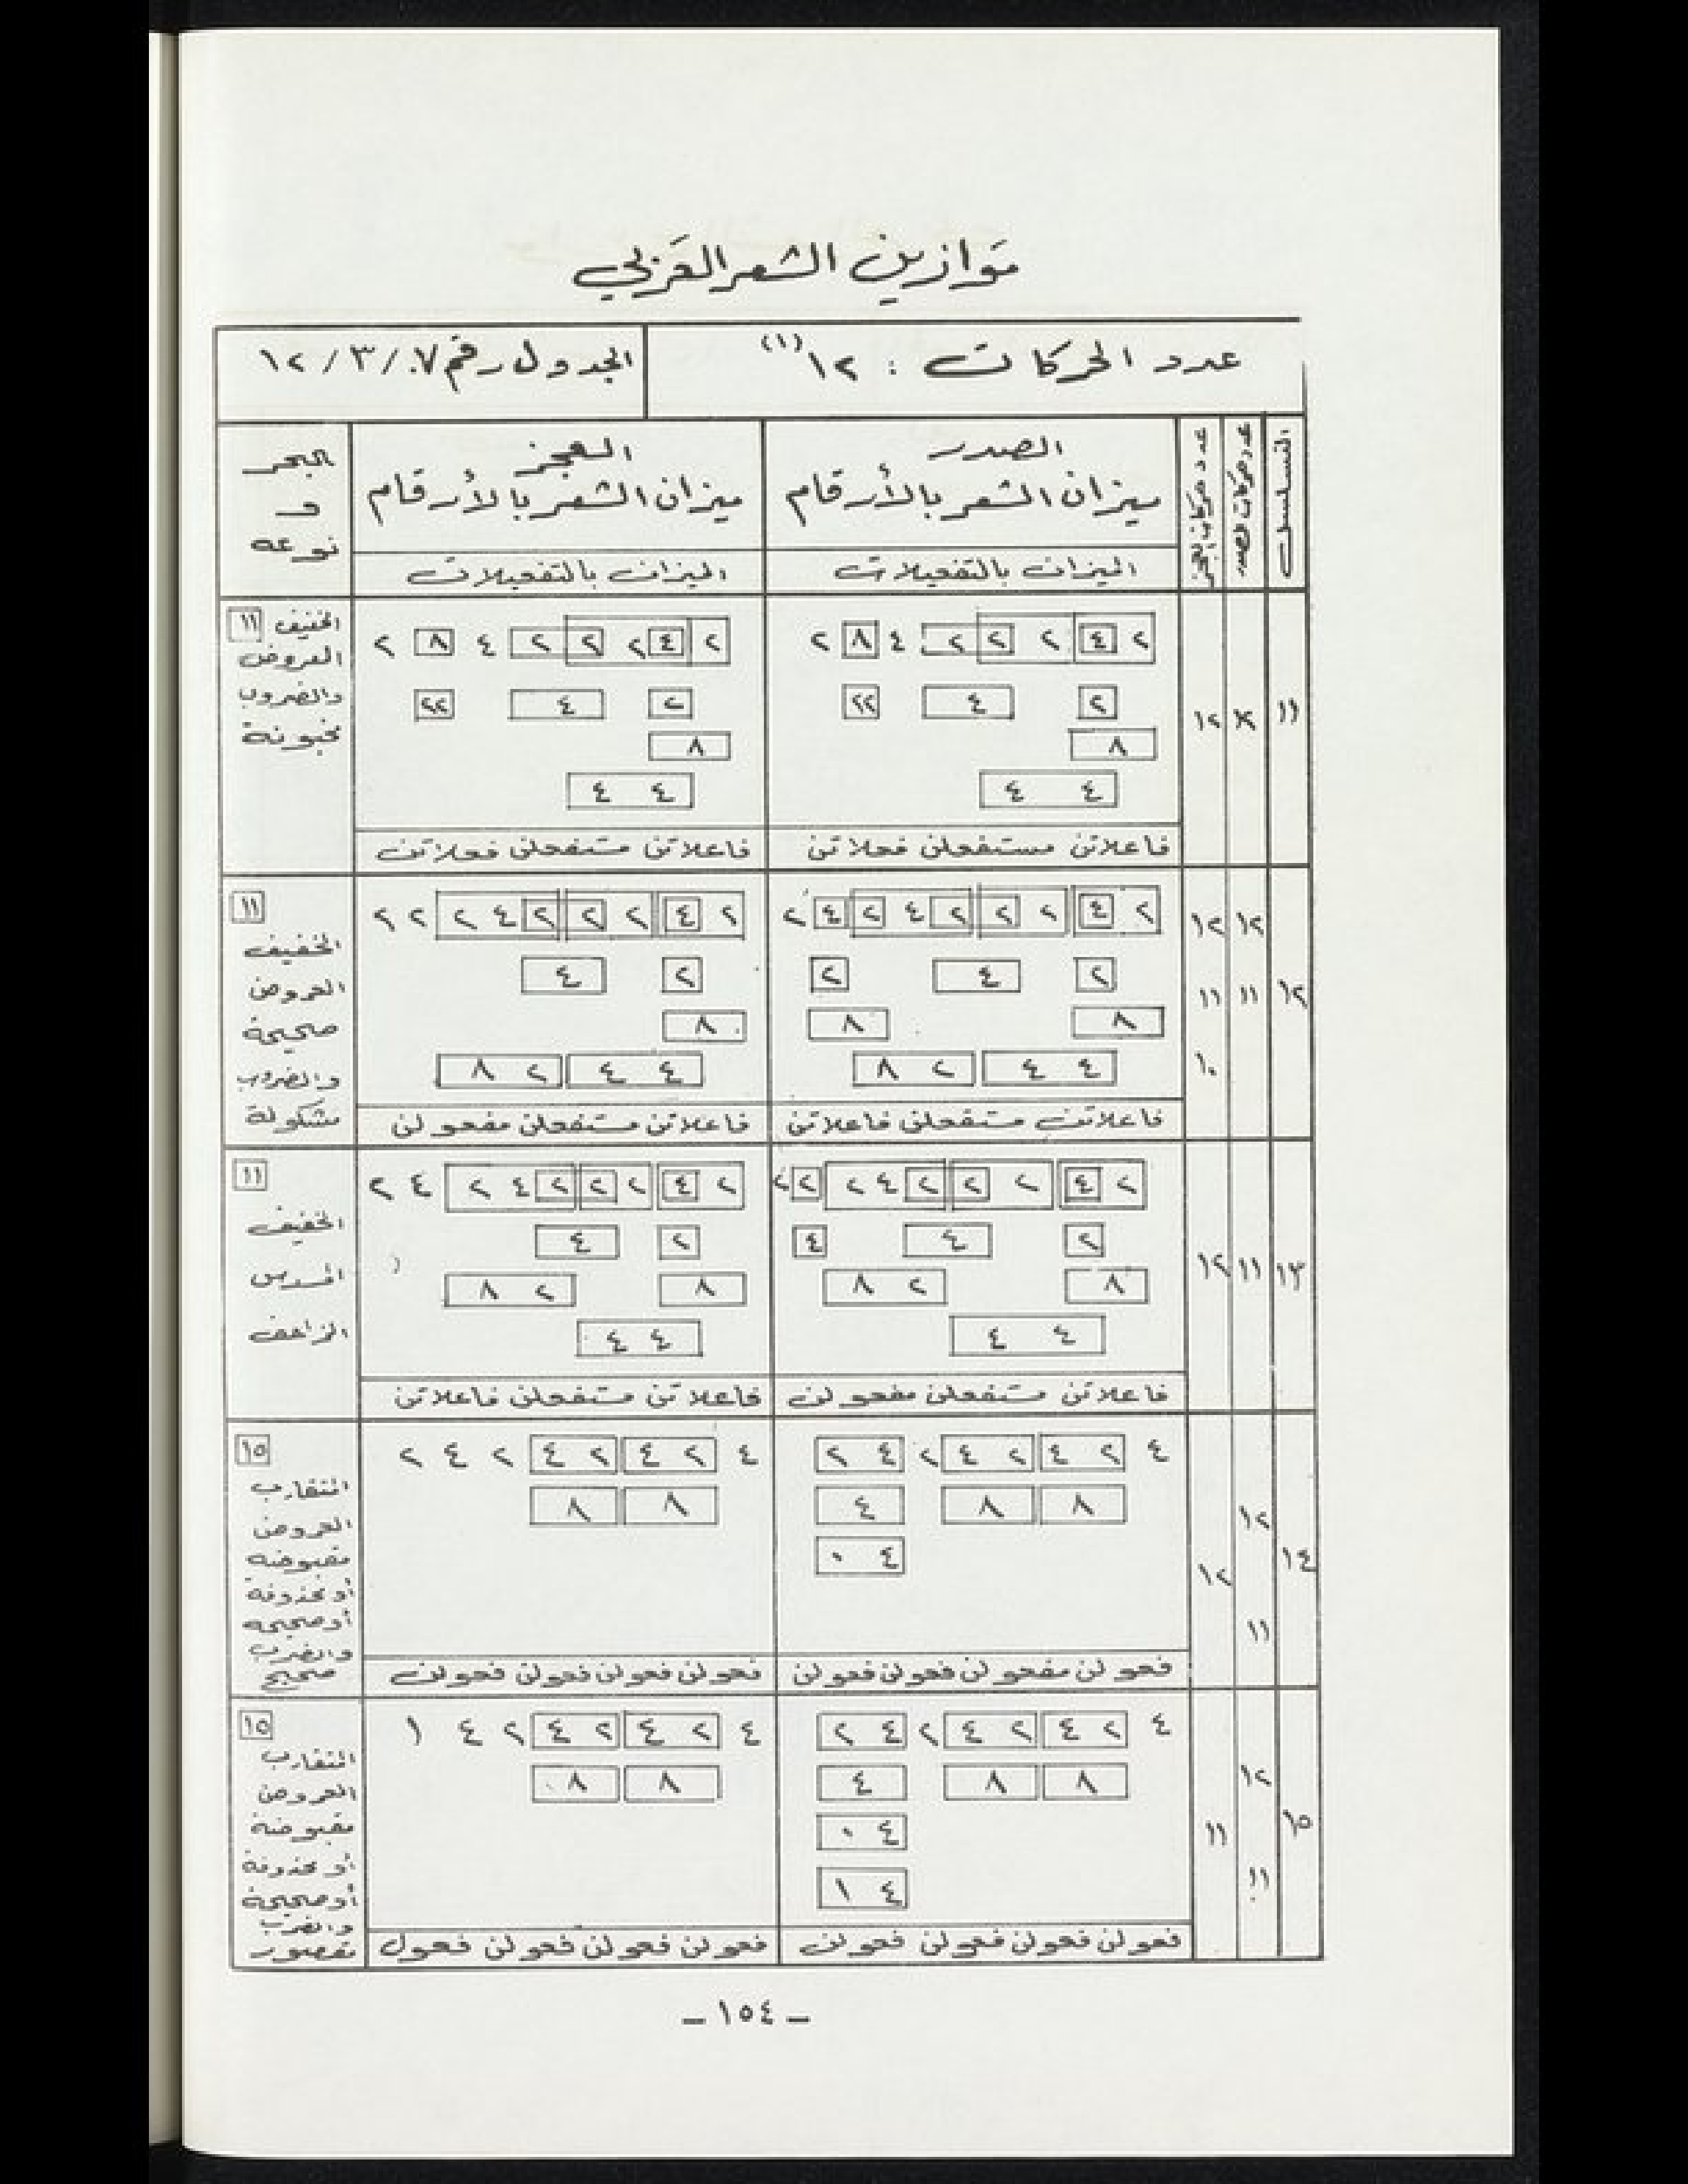 موازين الشعر العربي
عدد الحركات : ١٢ (١)
الجدول رقم ٧./٣/١٢
التسلسل
عدد حركات الصدر
عدد حركات العجز
الصدر
ميزان الشعر بالأرقام
الميزان بالتفعيلات
العجز
ميزان الشعر بالأرقام
الميزان بالتفعيلات
البحر
و
نوعه
١١
١٢
١٢
٢ ٤ ٢ ٢ ٢ ٤ ٨ ٢
٢ ٤ ٢٢
٨
٤ ٤
فاعلاتن مستفعلن فعلاتن
٢ ٤ ٢ ٢ ٢ ٤ ٨ ٢
٢ ٤ ٢٢
٨
٤ ٤
فاعلاتن مستفعلن فعلاتن
الخفيف ١١
العروض
والضروب
مخبونة
١٢
١٢
١١
١٢
١١
١٠
٢ ٤ ٢ ٢ ٢ ٤ ٢ ٤ ٢
٢ ٤ ٢
٨ ٨
٤ ٤ ٢ ٨
فاعلاتن مستفعلن فاعلاتن
٢ ٤ ٢ ٢ ٢ ٤ ٢ ٢ ٢
٢ ٤
٨
٤ ٤ ٢ ٨
فاعلاتن مستفعلن مفعولن
١١
الخفيف
العروض
صحيحة
والضروب
مشكولة
١٣
١١
١٢
٢ ٤ ٢ ٢ ٢ ٤ ٢ ٢ ٢
٢ ٤ ٤
٨ ٢ ٨
٤ ٤
فاعلاتن مستفعلن مفعولن
٢ ٤ ٢ ٢ ٢ ٤ ٢ ٤ ٢
٢ ٤
٨ ٢ ٨
٤ ٤
فاعلاتن مستفعلن فاعلاتن
١١
الخفيف
المسدس
الزاحف
١٤
١٢
١١
١٢
٤ ٢ ٤ ٢ ٤ ٢ ٤ ٢
٨ ٨ ٤
٤ ٠
فعولن مفعولن فعولن فعولن
٤ ٢ ٤ ٢ ٤ ٢ ٤ ٢
٨ ٨
فعولن فعولن فعولن فعولن
١٥
المتقارب
العروض
مقبوضة
أو محذوفة
أو صحيحه
والضرب
صحيح
١٥
١٢
١١
١١
٤ ٢ ٤ ٢ ٤ ٢ ٤ ٢
٨ ٨ ٤
٤ ٠
٤ ١
فعولن فعولن فعولن فعولن
٤ ٢ ٤ ٢ ٤ ٢ ٤ ١
٨ ٨
فعولن فعولن فعولن فعول
١٥
المتقارب
العروض
مقبوضة
أو محذوفة
أو صحيحة
والضرب
مقصور
– ١٥٤ –